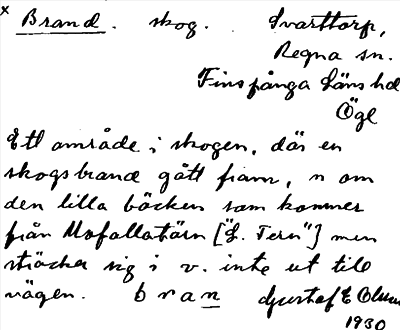 x Brand. skog. Svarttorp,
Regna sn.
Finspånga läns hd
Ögl
Ett område i skogen, där en
skogsbrand gått fram, n om
den lilla bäcken som kommer
från Mofallatärn ["L. Tern"] men
sträcker sig i v. inte ut till
vägen. bran Gustaf E Olsson
1930